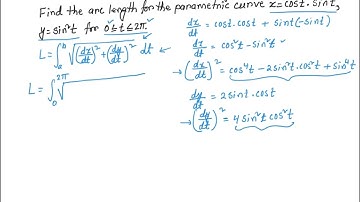 Find the arc length for the parametric curve x=cost.sint,
y=sin²t for 0≤t≤2π.
L=∫ₐᵇ√((dx/dt)²+(dy/dt)²) dt
L=∫₀²π√
dx/dt = cost.cost + sint(-sint)
dx/dt = cos²t - sin²t
→(dx/dt)² = cos⁴t - 2sin²t.cos²t + sin⁴t
dy/dt = 2sint.cost
→(dy/dt)² = 4sin²t cos²t